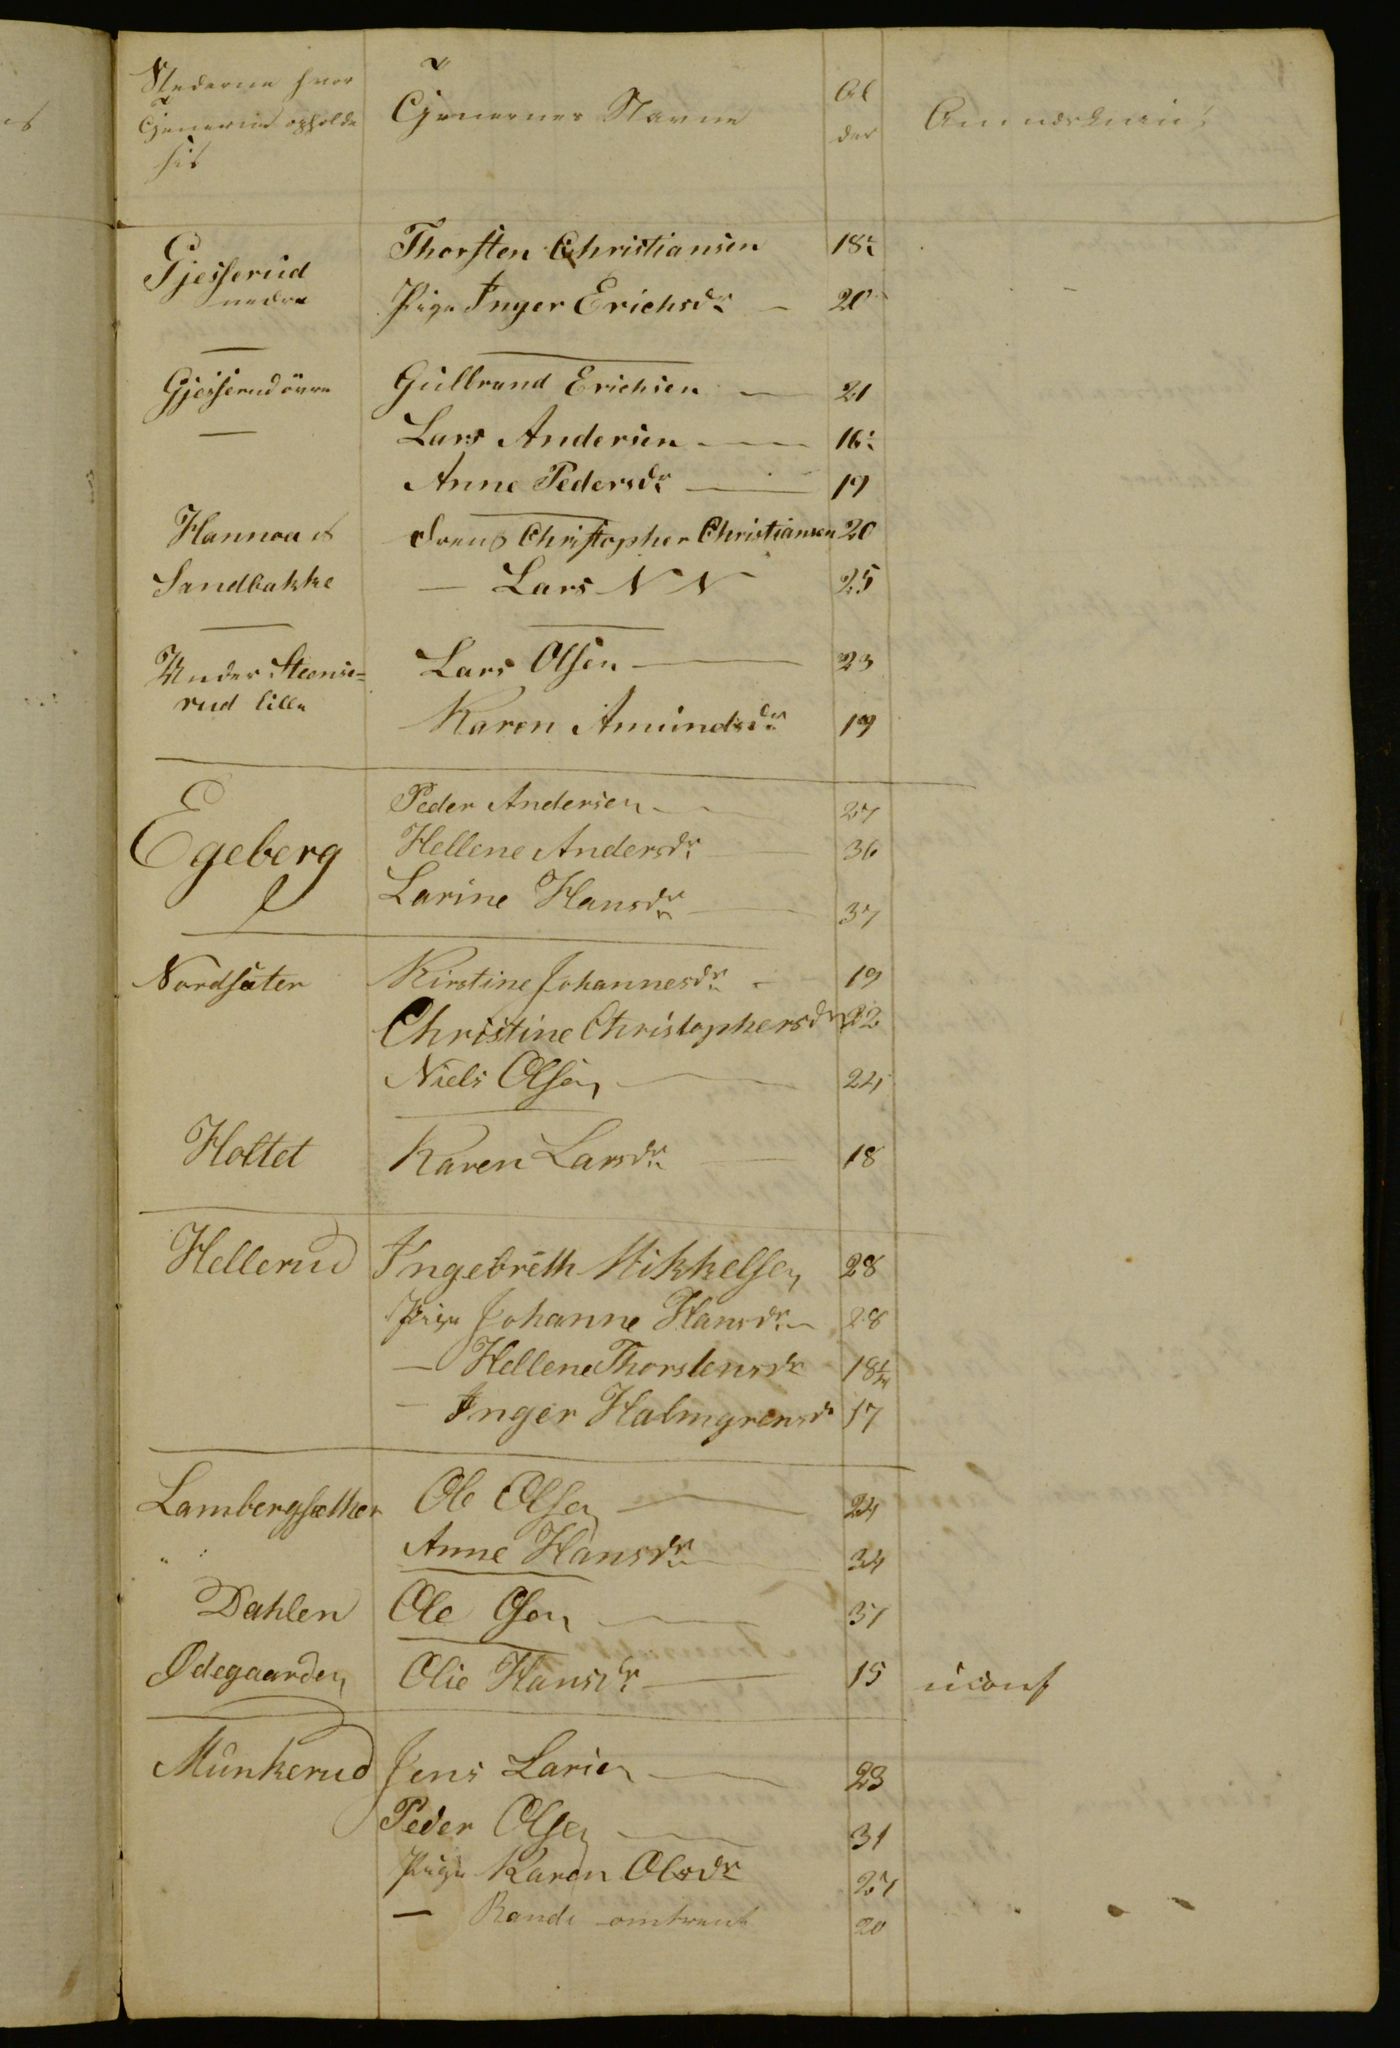 Stederne hvor
Tjenerne opholde
sig
Tjenernes Navne
Al
der
Anmærkning
Gjesserud Thorsten Christiansen 18½
nedre Pige Inger Erichsdr. 20
Gjesserud övre Gulbrand Erichsen 21
— Lars Andersen 16½
Anne Pedersdr. 19
Hannoa et Dreng Christopher Christiansen 20
Sandbakke — Lars N N 25
Under Steens= Lars Olsen 23
rud lille Karen Amundsdr. 19
Peder Andersen 27
Egeberg Hellene Andersdr. 36
Larine Hansdr. 37
Nordsäter Kirstine Johannesdr. 19
Christine Christophersdr. 22
Niels Olsen 24
Holtet Karen Larsdr. 18
Hellerud Ingebreth Mikkelsen 28
Pige Johanne Hansdr. 28
— Hellene Thorstensdr 18½
— Inger Halmgrensdr 17
Lambergsæther Ole Olsen 24
Anne Hansdr. 34
Dahlen Ole Olsen 37
Ødegaarden Olie Hansdr. 15 uconf
Munkerud Jens Larsen 23
Peder Olsen 31
Pige Karen Olsdr. 27
— Randi omtrent 20